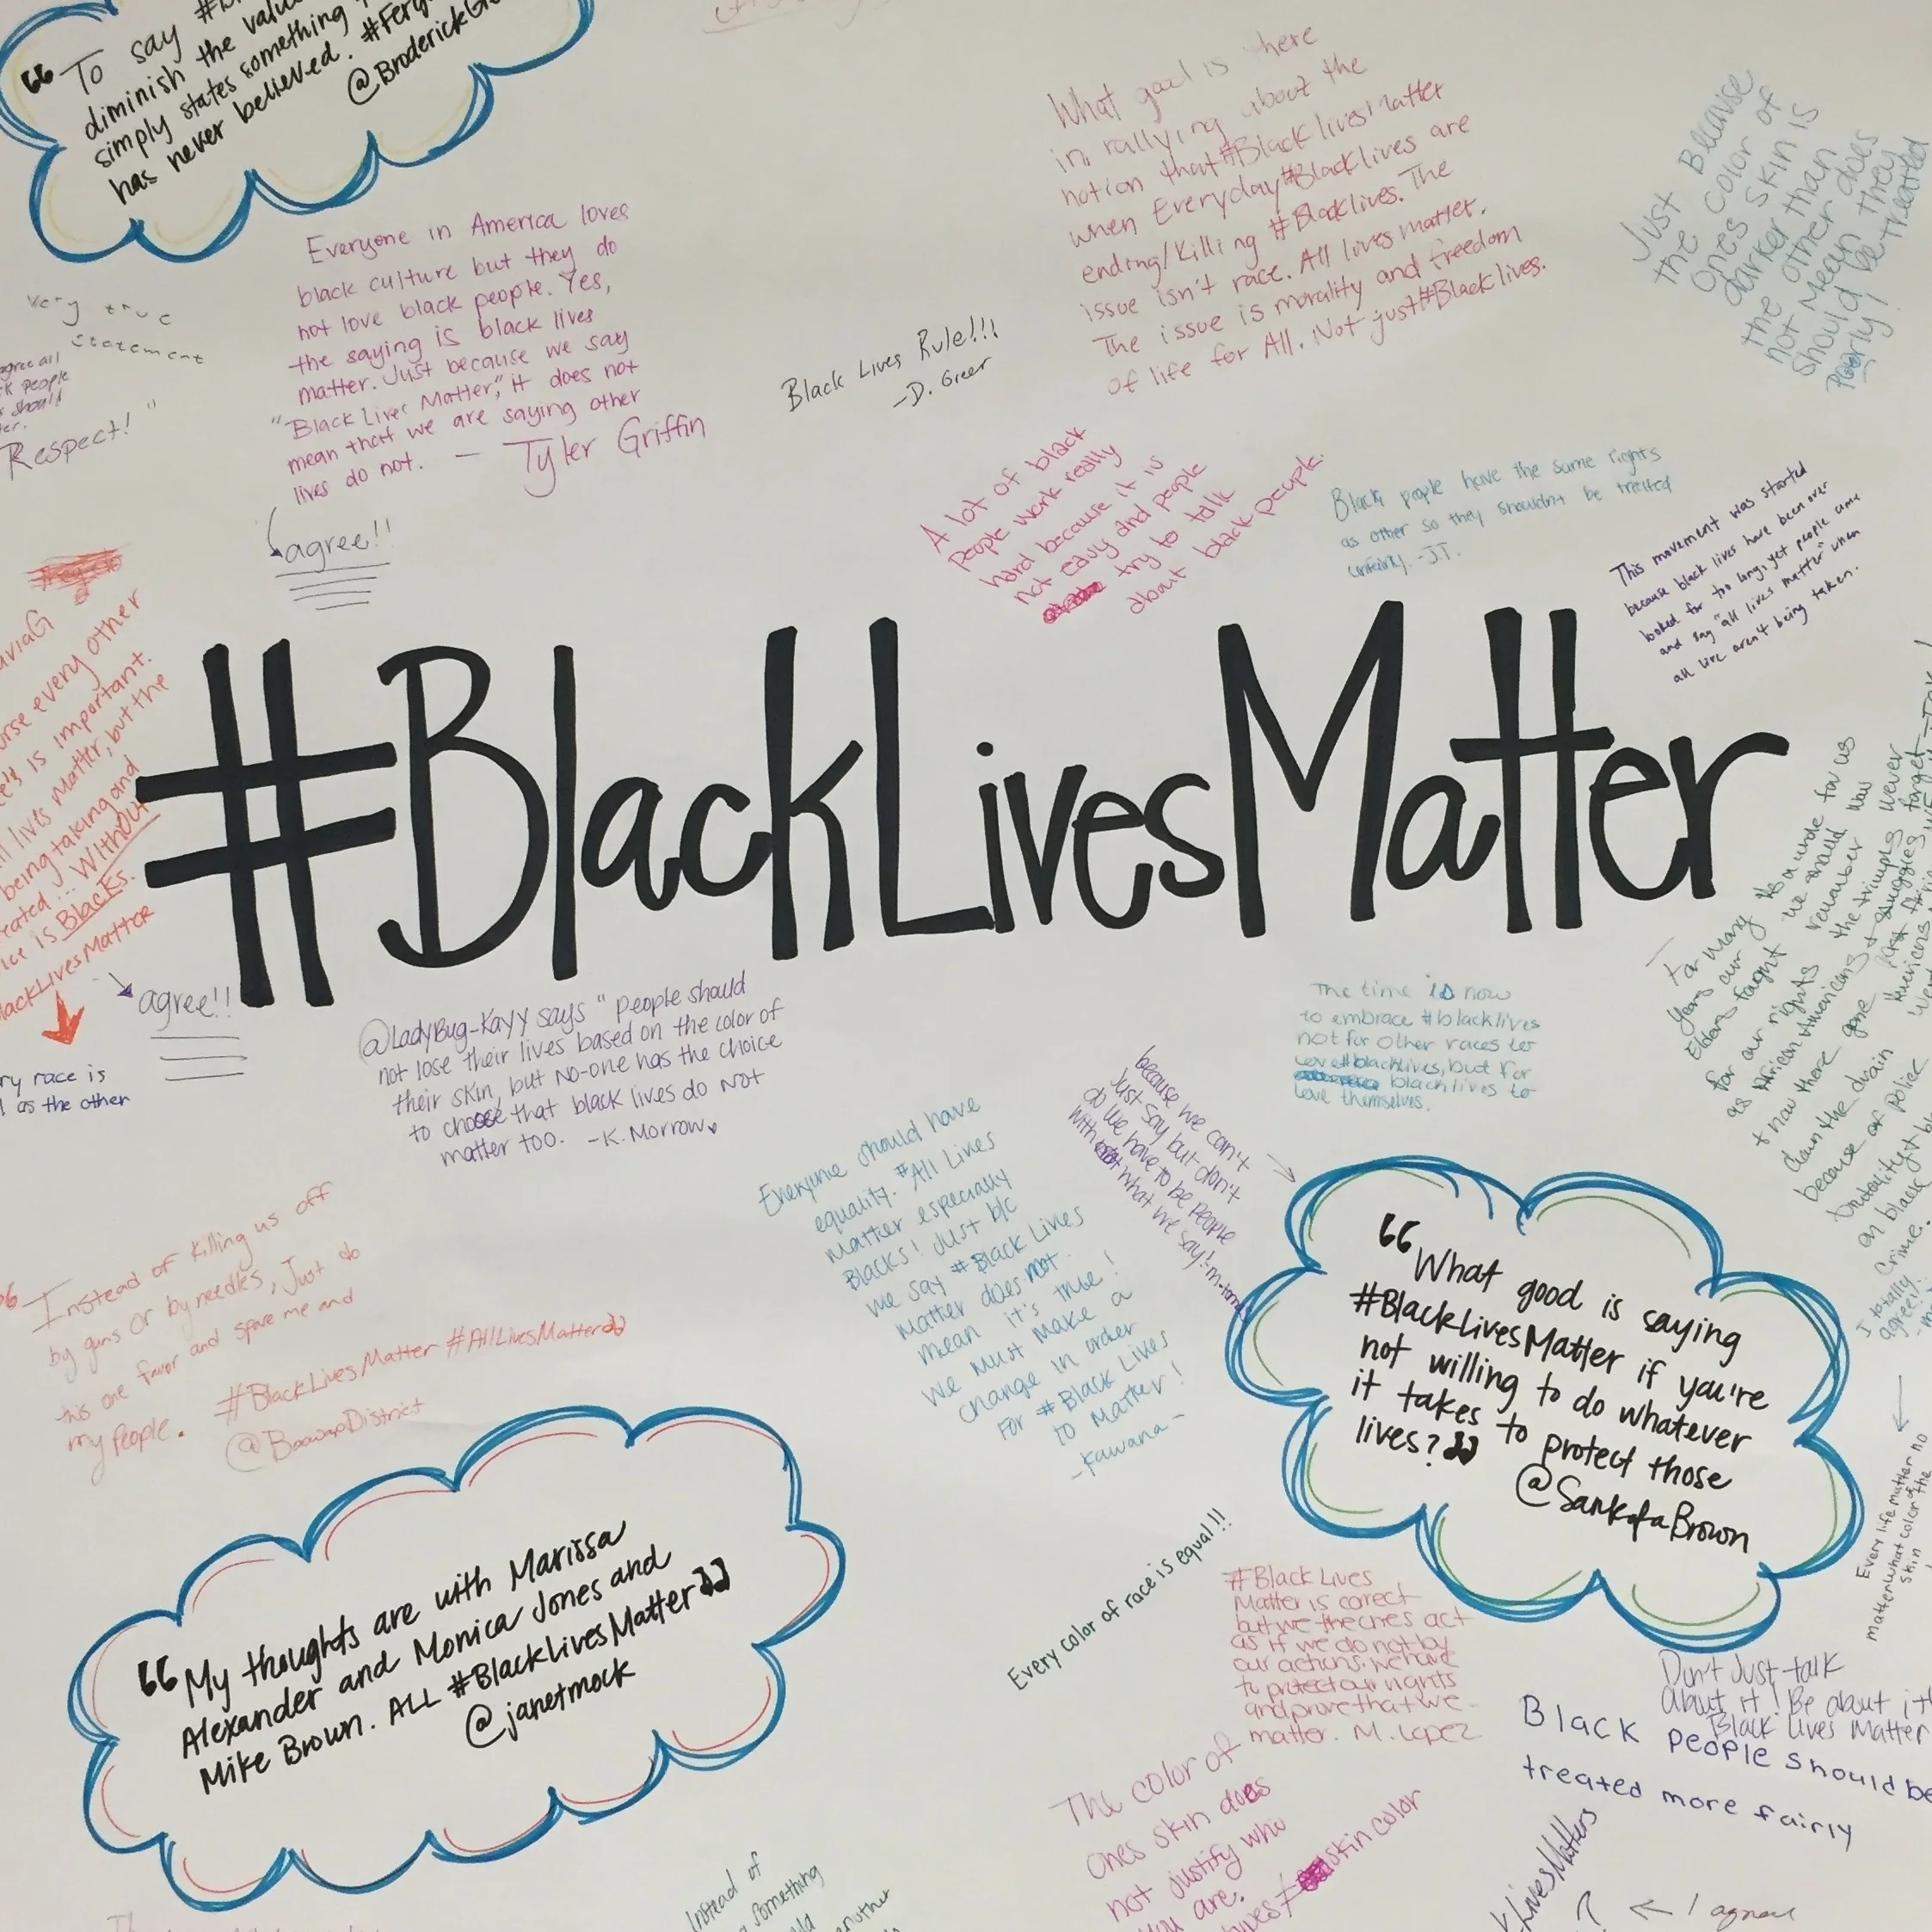 “ To say
diminish the
simply states something
has never believed.
Very true
statement
Respect!"
Everyone in America loves
black culture but they do
not love black people. Yes,
the saying is black lives
matter. Just because we say
"Black Lives Matter," it does not
mean that we are saying other
lives do not. — Tyler Griffin
agree!!
Black Lives Rule!!!
-D. Greer
What good is there
in rallying about the
notion that #Blacklives Matter
when Everyday #Blacklives are
ending/Killing #Blacklives. The
issue isn't race. All lives matter.
The issue is morality and freedom
of life for All. Not just #Blacklives.
Just Because
the color of
ones skin is
darker than
the other does
not mean they
should be treated
Poorly!
A lot of black
people work really
hard because it is
not easy and people
try to talk
about black people.
Black people have the same rights
as other so they shouldn't be treated
unfairly. -J.T.
This movement was started
because black lives have been over
looked for too long, yet people come
and say "all lives matter" when
all live aren't being taken.
#BlackLivesMatter
every other
is important.
lives matter, but the
being taking and
Without
is Blacks.
agree!!
race is
as the other
@LadyBug-Kayy says " people should
not lose their lives based on the color of
their skin, but no-one has the choice
to choose that black lives do not
matter too. -K. Morrow
The time is now
to embrace #blacklives
not for other races to
love #blacklives, but for
blacklives to
love themselves.
because we can't
Just say but don't
do we have to be people
with what we say!
Everyone should have
equality. #All Lives
Matter especially
Blacks! Just b/c
we say #Black Lives
Matter does not
mean it's true!
We must make a
change in order
For #Black Lives
to Matter!
-Kawana-
For many
years our
Elders fought
for our rights
as African Americans
down the drain
because of Police
on black
Crime.
I totally
agree!!
Instead of killing us off
by guns or by needles, Just do
this one favor and spare me and
my people. #BlackLivesMatter #AllLivesMatter
“What good is saying
#BlackLivesMatter if you're
not willing to do whatever
it takes to protect those
lives?”
@SankofaBrown
Every life matter no
matter what color of the
skin
“My thoughts are with Marissa
Alexander and Monica Jones and
Mike Brown. ALL #BlackLivesMatter”
@janetmock
Every color of race is equal!!!
#Black Lives
Matter is correct
but we the ones act
as if we do not by
our actions. we have
to protect our rights
and prove that we
matter. M. Lopez
Don't Just talk
About it! Be about it
Black Lives Matter
Black people should be
treated more fairly
The color of
ones skin does
not justify who
you are.
skin color
Instead of
something
another
LivesMatters
← I agree